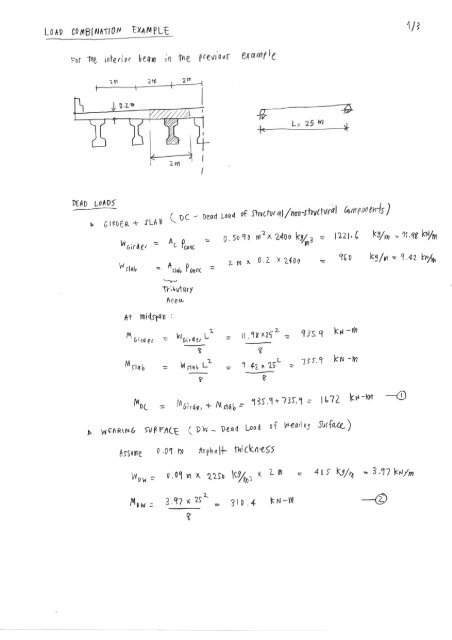 LOAD COMBINATION EXAMPLE
1/3
For the interior beam in the previous example
2m 2m 2m
0.2m
L = 25 m
2m
DEAD LOADS
GIRDER + SLAB ( DC - Dead Load of Structural / non-structural Components )
W Girder = Ac ρconc = 0.5090 m² x 2400 kg/m³ = 1221.6 kg/m = 11.98 kN/m
W slab = A slab ρconc = 2 m x 0.2 x 2400 = 960 kg/m = 9.42 kN/m
Tributary
Area
At midspan :
M Girder = W Girder L² / 8 = 11.98 x 25² / 8 = 935.9 kN-m
M slab = W slab L² / 8 = 9.42 x 25² / 8 = 735.9 kN-m
M DC = M Girder + M slab = 935.9 + 735.9 = 1672 kN-m ①
WEARING SURFACE ( DW - Dead Load of Wearing Surface )
Assume 0.09 m Asphalt thickness
W DW = 0.09 m x 2250 kg/m³ x 2 m = 405 kg/m = 3.97 kN/m
M DW = 3.97 x 25² / 8 = 310.4 kN-m ②